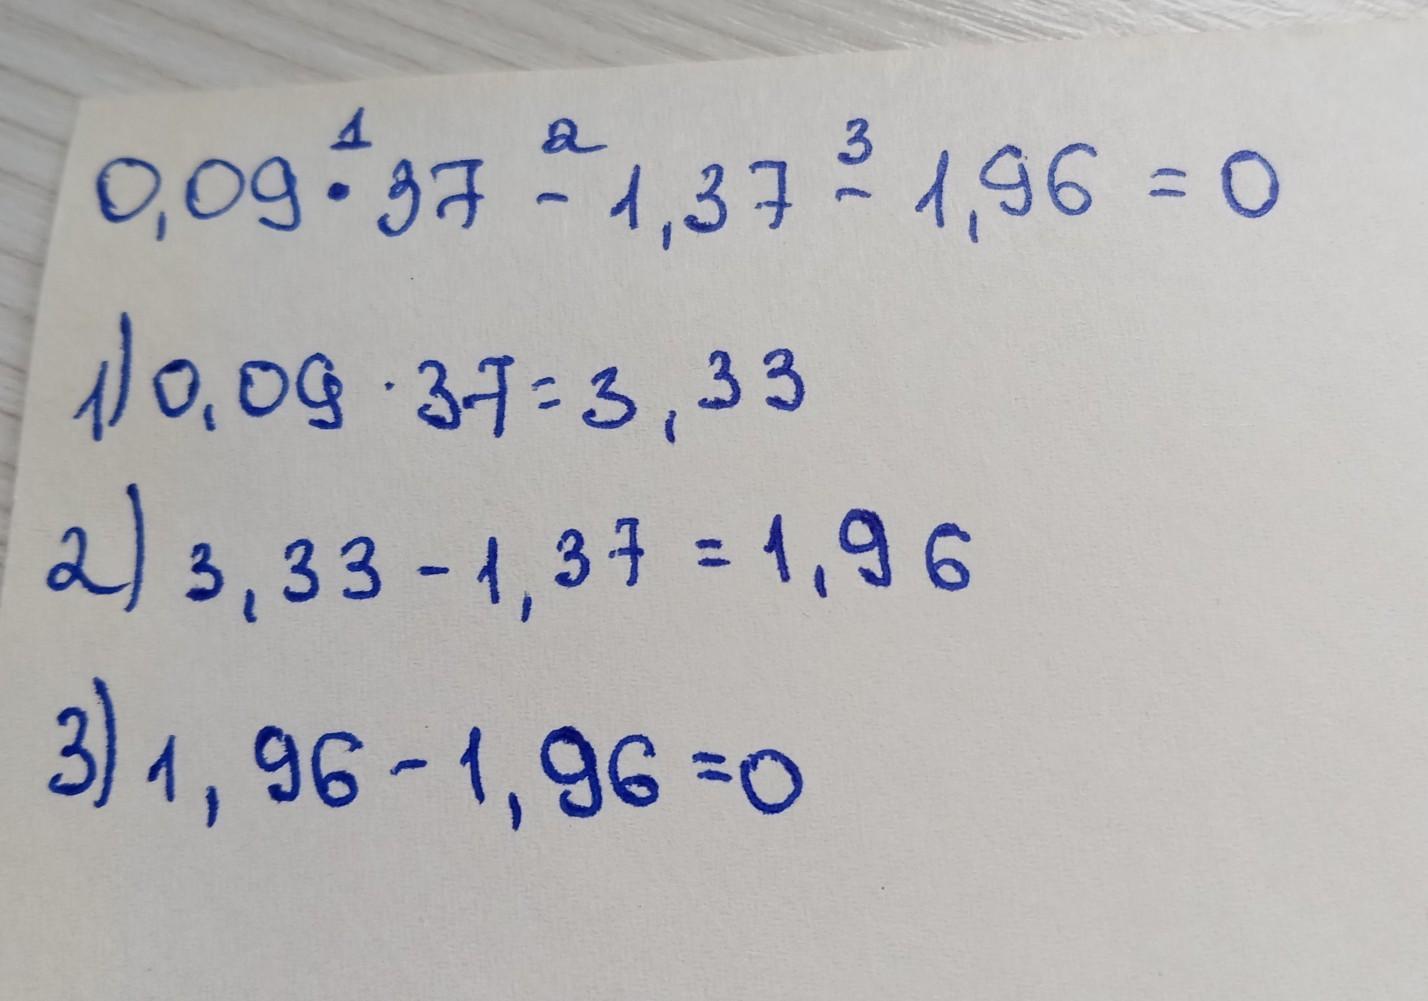 0,09 · 37 - 1,37 - 1,96 = 0
1) 0,09 · 37 = 3,33
2) 3,33 - 1,37 = 1,96
3) 1,96 - 1,96 = 0